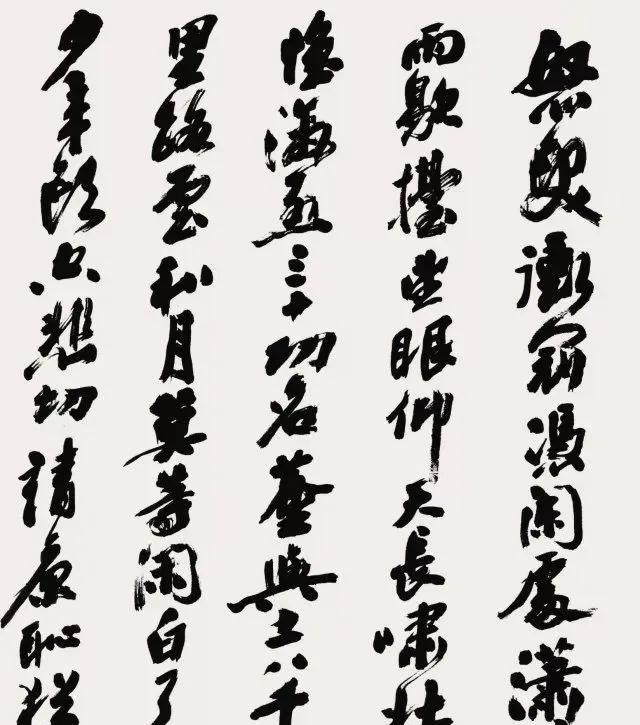 怒髮衝冠憑闌處瀟
雨歇擡望眼仰天長嘯壯
懷激烈三十功名塵與土八千
里路雲和月莫等閑白了
少年頭空悲切靖康恥猶